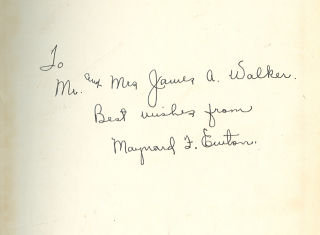 To
Mr. and Mrs James A. Walker.
Best wishes from
Maynard F. Euton.